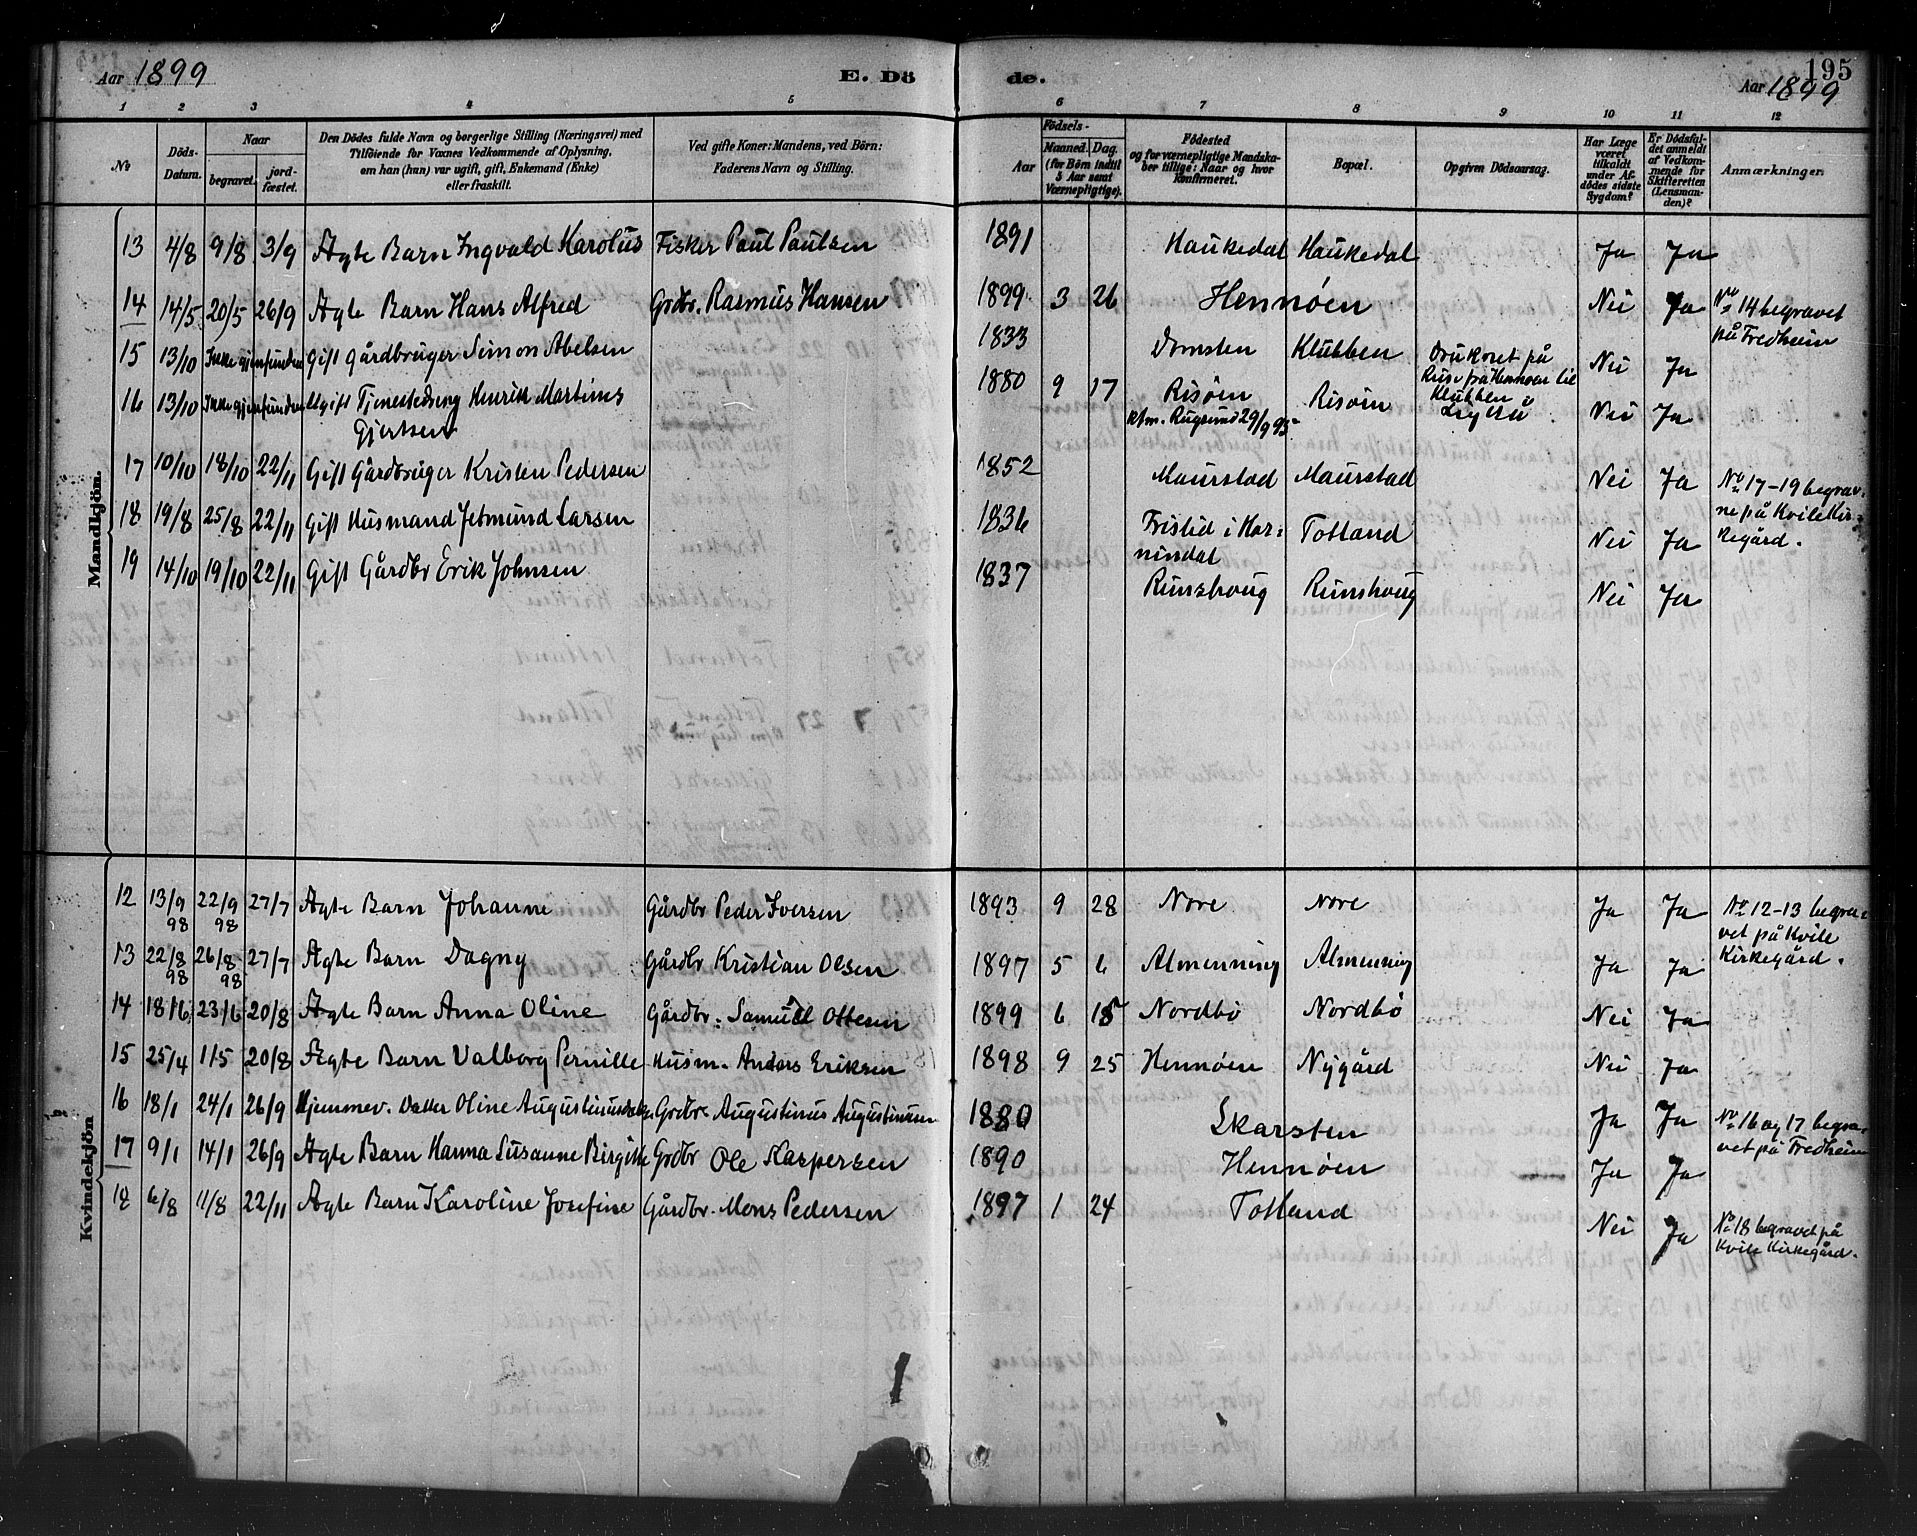 Aar 1899 E. Dö de. Aar 1899 195
1 2 3 4 5 6 7 8 9 10 11 12
No
Döds-Datum.
Naar
begravet.
jord-fæstet.
Den Dödes fulde Navn og borgerlige Stilling (Næringsvei) med
Tilföiende for Voxnes Vedkommende af Oplysning,
om han (hun) var ugift, gift, Enkemand (Enke)
eller fraskilt.
Ved gifte Koner: Mandens, ved Börn:
Faderens Navn og Stilling.
Födsels-
Aar
Maaned. Dag.
(for Börn indtil
5 Aar samt
Værnepligtige).
Födested
og for værnepligtige Mandska-
ber tillige: Naar og hvor
Konfirmeret.
Bopæl.
Opgiven Dödsaarsag.
Har Læge
været
tilkaldt
under Af-
dödes sidste
Sygdom?
Er Dödsfal-
det anmeldt
af Vedkom-
mende for
Skifteretten
(Lensman-
den)?
Anmærkninger.
Mandkjön.
13 4/8 9/8 3/9 Ægte Barn Ingvald Karolus Fisker Paul Paulsen 1891 Haukedal Haukedal Ja Ja
14 14/5 20/5 26/9 Ægte Barn Hans Alfred Grdbr. Rasmus Hansen 1899 3 26 Hennøen Nei Ja No 14 begravet
på Fredheim
15 13/10 Ikke gjenfunden Gift Gårdbruger Simon Abelsen 1833 Domsten Klubben Druknet på
Reise på Hennøen til
Klubben i
Nei Ja
16 13/10 Ikke gjenfunden Ugift Tjenestedreng Henrik Martinus
Gjertsen 1880 9 17 Risøen
kfm. Rugsund 29/9 95 Risøen Nei Ja
17 10/10 18/10 22/11 Gift Gårdbruger Kristen Pedersen 1852 Maurstad Maurstad Nei Ja No 17-19 begrav-
ne på Kvile Kir-
kegård.
18 19/8 25/8 22/11 Gift Husmand Jetmund Larsen 1836 Fristid i Hor-
nindal Totland Nei Ja
19 14/10 19/10 22/11 Gift Gårdbr Erik Johnsen 1837 Runshoug Runshoug Nei Ja
Kvindekjön
12 13/9 98 22/9 98 27/7 Ægte Barn Johanne Gårdbr Peder Iversen 1893 9 28 Nore Nore Ja Ja No 12-13 begra-
vet på Kvile
Kirkegård.
13 22/8 98 26/8 98 27/7 Ægte Barn Dagny Gårdbr Kristian Olsen 1897 5 6 Almenning Almenning Ja Ja
14 18/6 23/6 20/8 Ægte Barn Anna Oline Gårdbr. Samuel Ottesen 1899 6 15 Nordbø Nordbø Nei Ja
15 25/4 1/5 20/8 Ægte Barn Valborg Pernille Husm. Anders Eriksen 1898 9 25 Hennøen Nygård Nei Ja
16 18/1 24/1 26/9 Hjemmev. Datter Oline Augustinusdatr. Grdbr Augustinus Augustinusen 1880 Skarsten Ja Ja No 16 og 17 begra-
vet på Fredheim
17 9/1 14/1 26/9 Ægte Barn Hanna Susanne Birgitte Grdbr Ole Kaspersen 1890 Hennøen Ja Ja
18 6/8 11/8 22/11 Ægte Barn Karoline Josefine Gårdbr. Mons Pedersen 1897 1 24 Totland Nei Ja No 18 begravet på
Kvile Kirkegård.